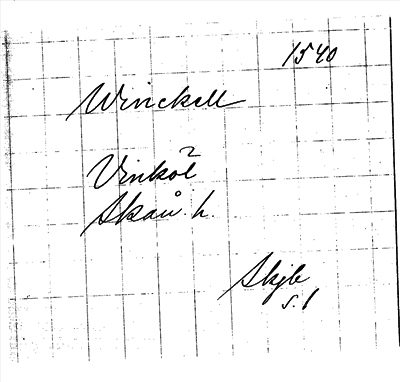 1540
Winckell
Vinköl
Skån. h.
Skjb
s. 1